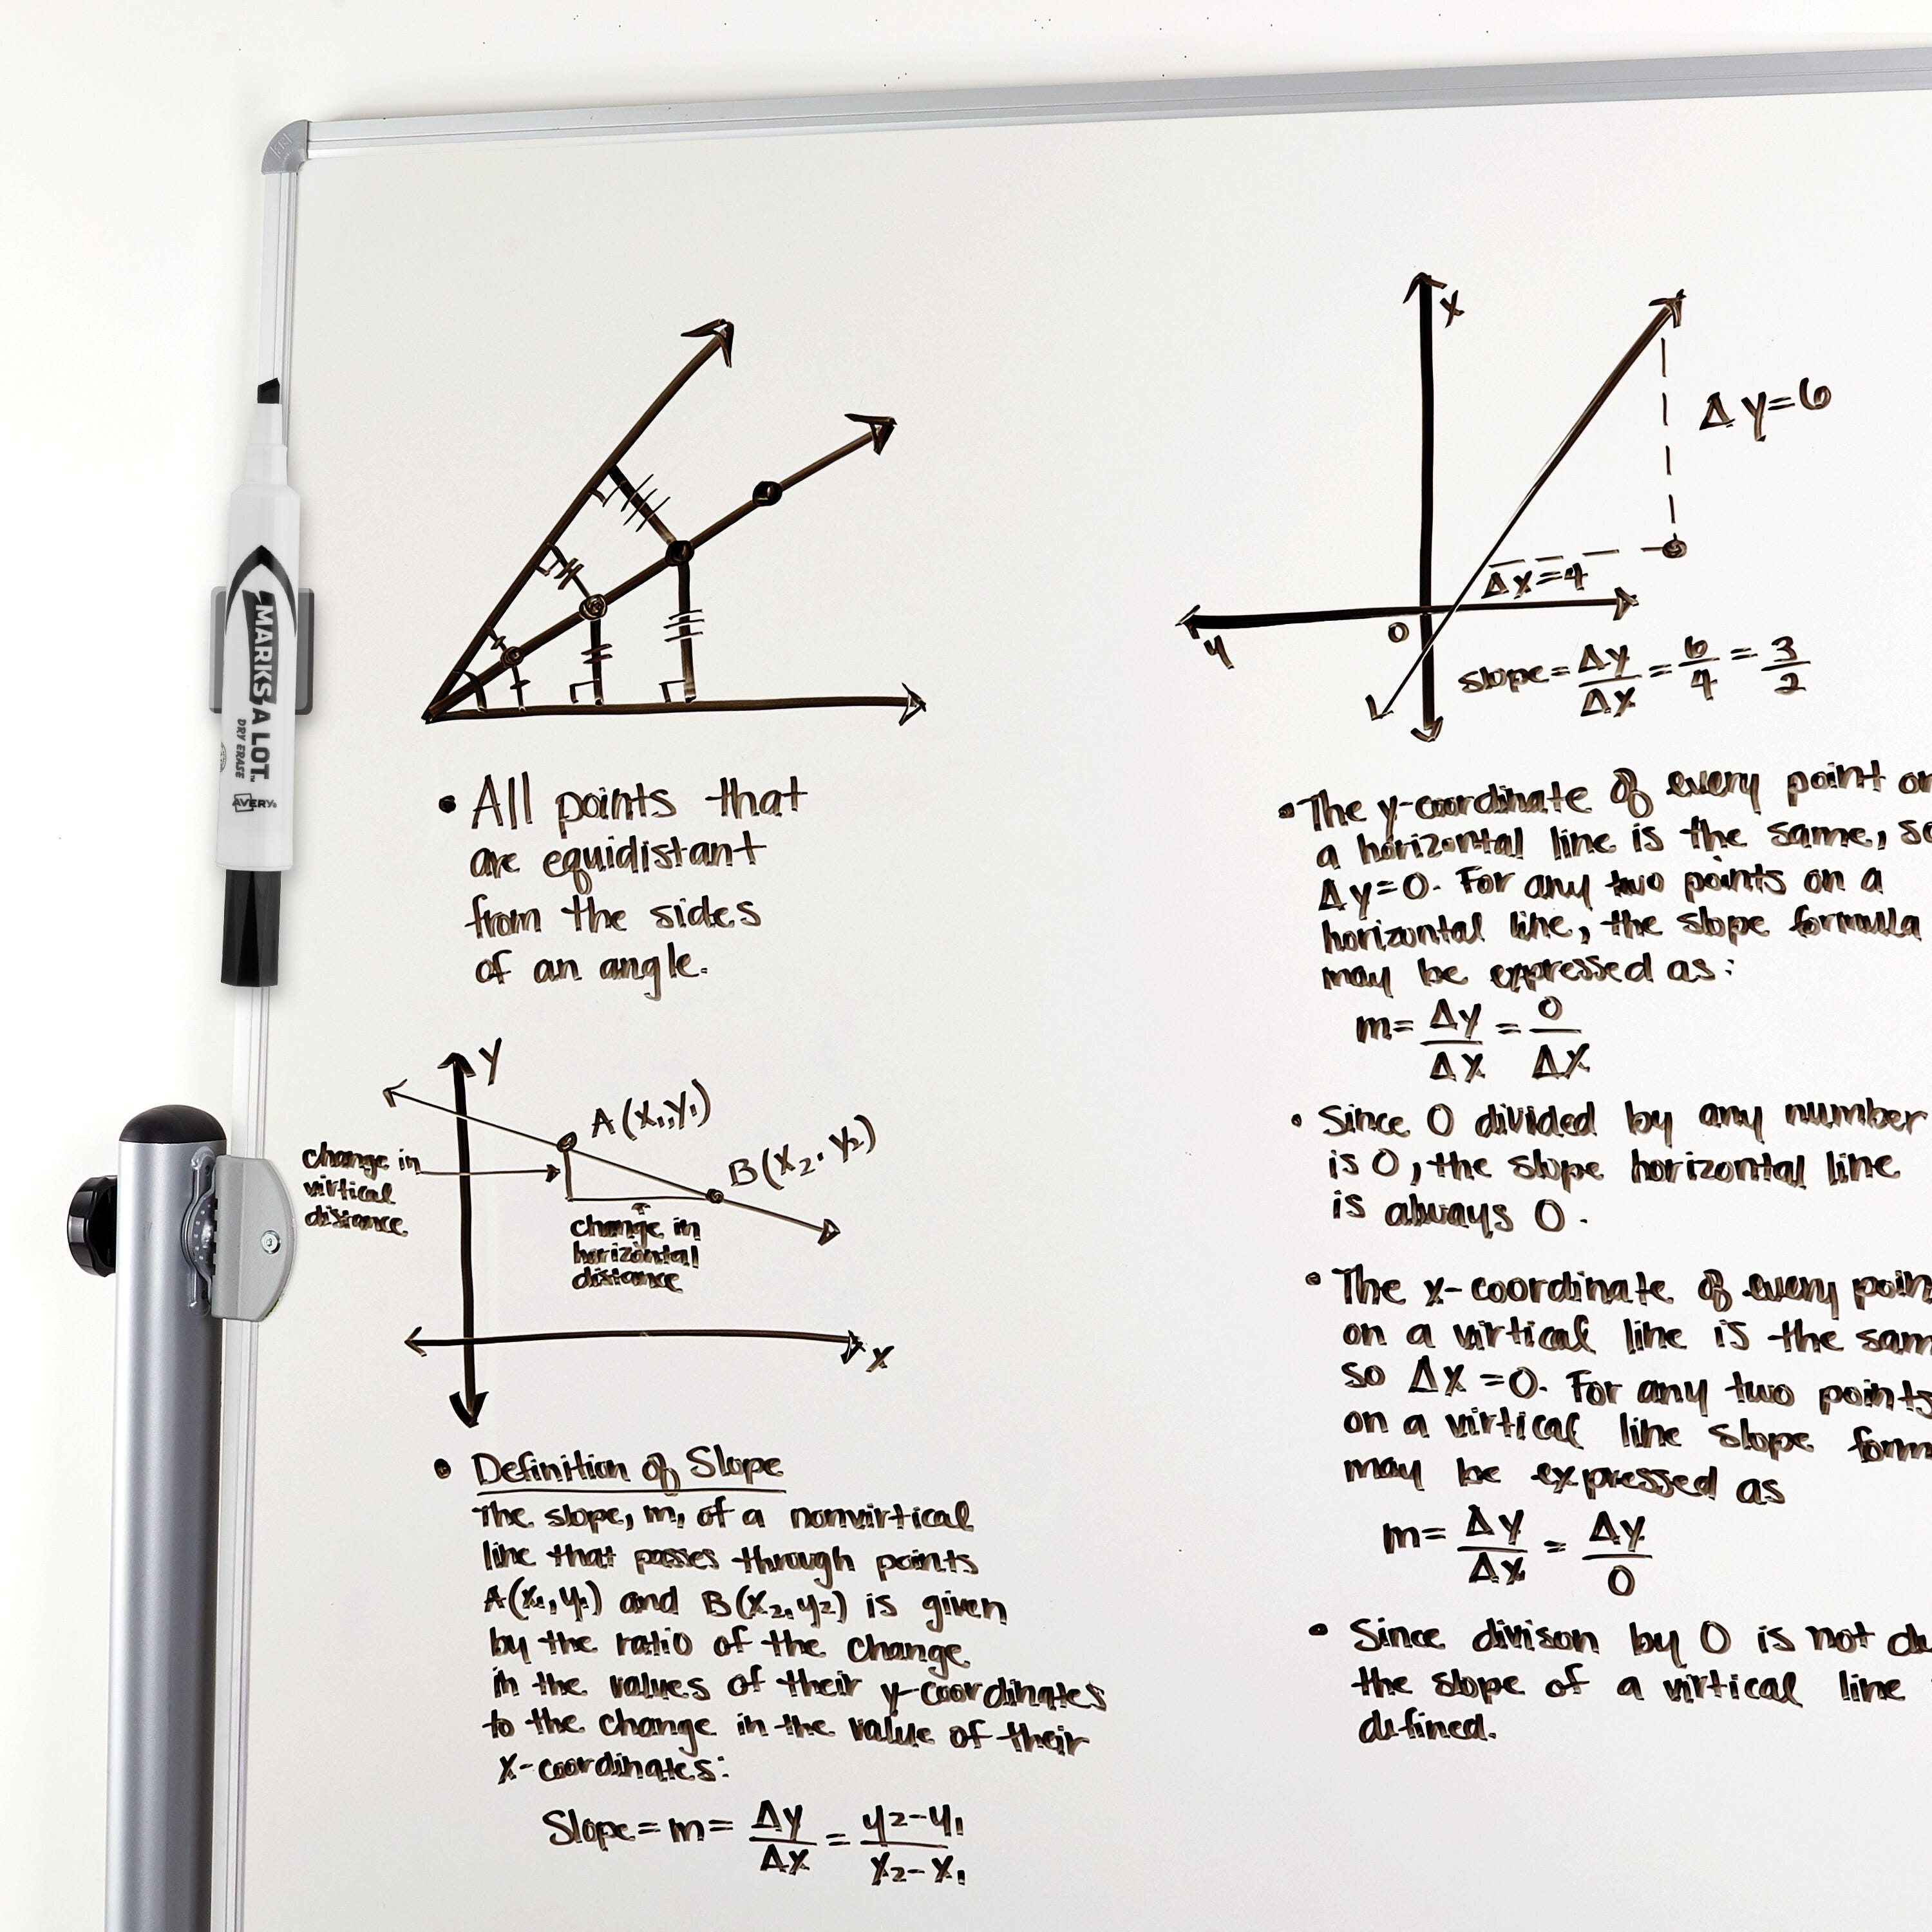 MARKS A LOT
DRY ERASE
AVERY
• All points that
are equidistant
from the sides
of an angle.
Y
A(x₁,y₁)
B(x₂,y₂)
change in
virtical
distance
change in
horizontal
distance
X
• Definition of Slope
The slope, m, of a nonvirtical
line that passes through points
A(x₁,y₁) and B(x₂,y₂) is given
by the ratio of the change
in the values of their y-coordinates
to the change in the value of their
X-coordinates:
Slope = m = Δy/Δx = y₂-y₁/x₂-x₁
X
Δy=6
Δx=4
y
0
slope = Δy/Δx = 6/4 = 3/2
• The y-coordinate of every point on
a horizontal line is the same, so
Δy=0. For any two points on a
horizontal line, the slope formula
may be expressed as:
m= Δy/Δx = 0/Δx
• Since 0 divided by any number
is 0, the slope horizontal line
is always 0.
• The x-coordinate of every poin
on a virtical line is the sam
so Δx=0. For any two points
on a virtical line slope form
may be expressed as
m= Δy/Δx = Δy/0
• Since divison by 0 is not de
the slope of a virtical line
defined.